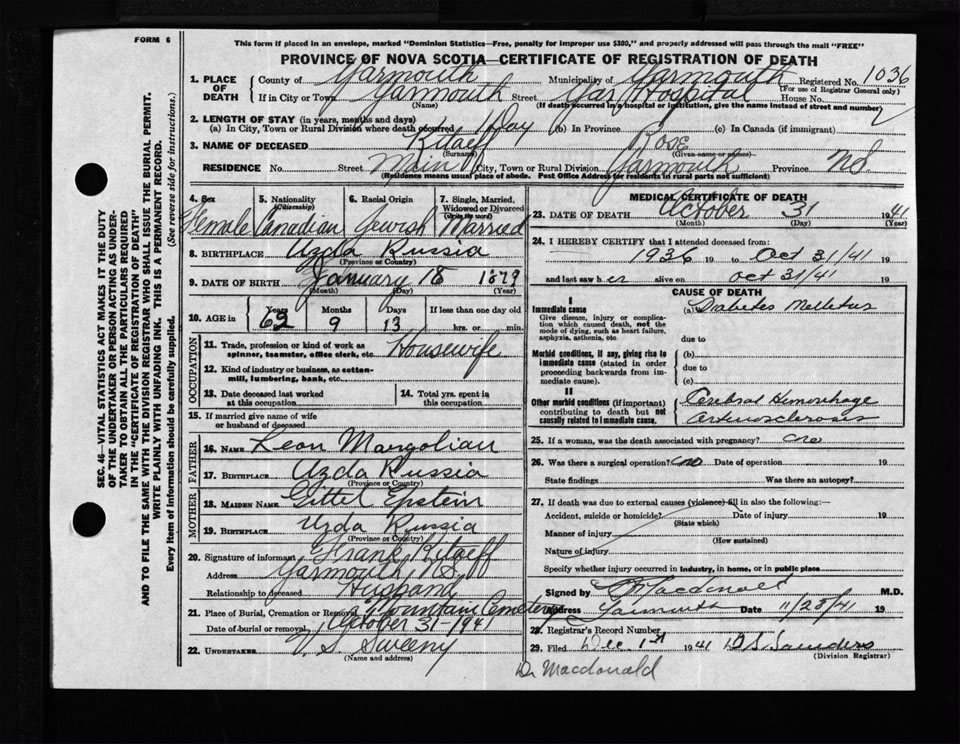 FORM 6
This form if placed in an envelope, marked "Dominion Statistics—Free, penalty for improper use $300," and properly addressed will pass through the mail "FREE"
PROVINCE OF NOVA SCOTIA—CERTIFICATE OF REGISTRATION OF DEATH
1. PLACE OF DEATH County of Yarmouth Municipality of Yarmouth Registered No. 1036
(For use of Registrar General only)
If in City or Town Yarmouth Street Yar Hospital House No.
(Name) (If death occurred in a hospital or institution, give the name instead of street and number)
2. LENGTH OF STAY (in years, months and days)
(a) In City, Town or Rural Division where death occurred 1 Day (b) In Province (c) In Canada (if immigrant)
3. NAME OF DECEASED Kitaeff Rose
(Surname) (Given name or names)
RESIDENCE No. Street Main City, Town or Rural Division Yarmouth Province NS
(Residence means usual place of abode. Post Office Address for residents in rural parts not sufficient)
4. Sex 5. Nationality (Citizenship) 6. Racial Origin 7. Single, Married, Widowed or Divorced (Write the word)
Female Canadian Jewish Married
8. BIRTHPLACE Uzda Russia
(Province or Country)
9. DATE OF BIRTH January 18 1879
(Month) (Day) (Year)
10. AGE in Years Months Days If less than one day old
62 9 13 hrs. or min.
OCCUPATION
11. Trade, profession or kind of work as spinner, teamster, office clerk, etc. Housewife
12. Kind of industry or business, as cotton-mill, lumbering, bank, etc.
13. Date deceased last worked at this occupation 14. Total yrs. spent in this occupation
15. If married give name of wife or husband of deceased
FATHER
16. NAME Leon Margolian
17. BIRTHPLACE Uzda Russia
(Province or Country)
MOTHER
18. MAIDEN NAME Gittel Epstein
19. BIRTHPLACE Uzda Russia
(Province or Country)
20. Signature of informant Frank Kitaeff
Address Yarmouth, N.S.
Relationship to deceased Husband
21. Place of Burial, Cremation or Removal Mountain Cemetery
Date of burial or removal October 31-1941
22. UNDERTAKER V. S. Sweeny
(Name and address)
MEDICAL CERTIFICATE OF DEATH
23. DATE OF DEATH October 31 1941
(Month) (Day) (Year)
24. I HEREBY CERTIFY that I attended deceased from:
1936 19 to Oct 31/41 19
and last saw h er alive on Oct 31/41 19
CAUSE OF DEATH
I
Immediate cause (a) Diabetes Melletus
Give disease, injury or complication which caused death, not the mode of dying, such as heart failure, asphyxia, asthenia, etc
due to
Morbid conditions, if any, giving rise to immediate cause (stated in order proceeding backwards from immediate cause).
(b)
due to
(c)
II
Other morbid conditions (if important) contributing to death but not causally related to immediate cause.
Cerebral Hemorrhage
Arteriosclerosis
25. If a woman, was the death associated with pregnancy? no
26. Was there a surgical operation? no Date of operation 19
State findings Was there an autopsy?
27. If death was due to external causes (violence) fill in also the following:—
Accident, suicide or homicide? Date of injury 19
(State which)
Manner of injury
(How sustained)
Nature of injury
Specify whether injury occurred in industry, in home, or in public place
Signed by Macdonald M.D.
Address Yarmouth Date 11/28/41 19
28. Registrar's Record Number
29. Filed Dec 1st 1941 D. S. Saunders
(Division Registrar)
Dr Macdonald
SEC. 46—VITAL STATISTICS ACT MAKES IT THE DUTY
OF THE UNDERTAKER OR PERSON ACTING AS UNDER-
TAKER TO OBTAIN ALL THE PARTICULARS REQUIRED
IN THE "CERTIFICATE OF REGISTRATION OF DEATH"
AND TO FILE THE SAME WITH THE DIVISION REGISTRAR WHO SHALL ISSUE THE BURIAL PERMIT.
WRITE PLAINLY WITH UNFADING INK. THIS IS A PERMANENT RECORD.
Every item of information should be carefully supplied. (See reverse side for instructions.)